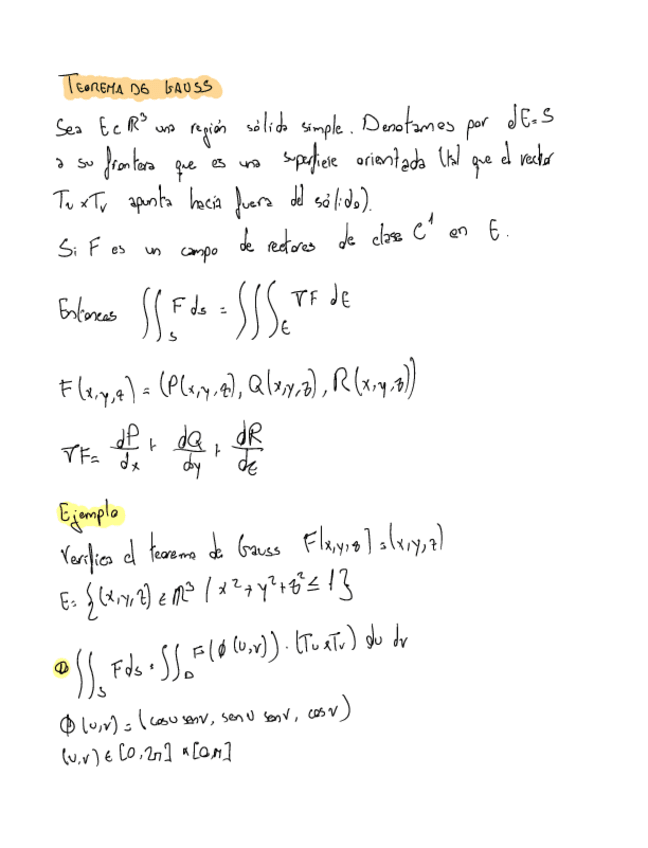 TEOREMA DE GAUSS
Sea E ⊂ ℝ³ una región sólida simple. Denotamos por dE=S
a su frontera que es una superficie orientada (tal que el vector
Tu×Tv apunta hacia fuera del sólido).
Si F es un campo de vectores de clase C¹ en E.
Entonces ∬_S F ds = ∭_E ∇F dE
F(x,y,z) = (P(x,y,z), Q(x,y,z), R(x,y,z))
∇F= dP/dx + dQ/dy + dR/dz
Ejemplo
Verifica el teorema de Gauss F(x,y,z)=(x,y,z)
E= {(x,y,z) ∈ ℝ³ / x²+y²+z² ≤ 1}
① ∬_S F ds = ∬_D F(ϕ(u,v)) · (Tu×Tv) du dv
ϕ(u,v) = (cosu senv, senu senv, cosv)
(u,v) ∈ [0,2π] × [0,π]